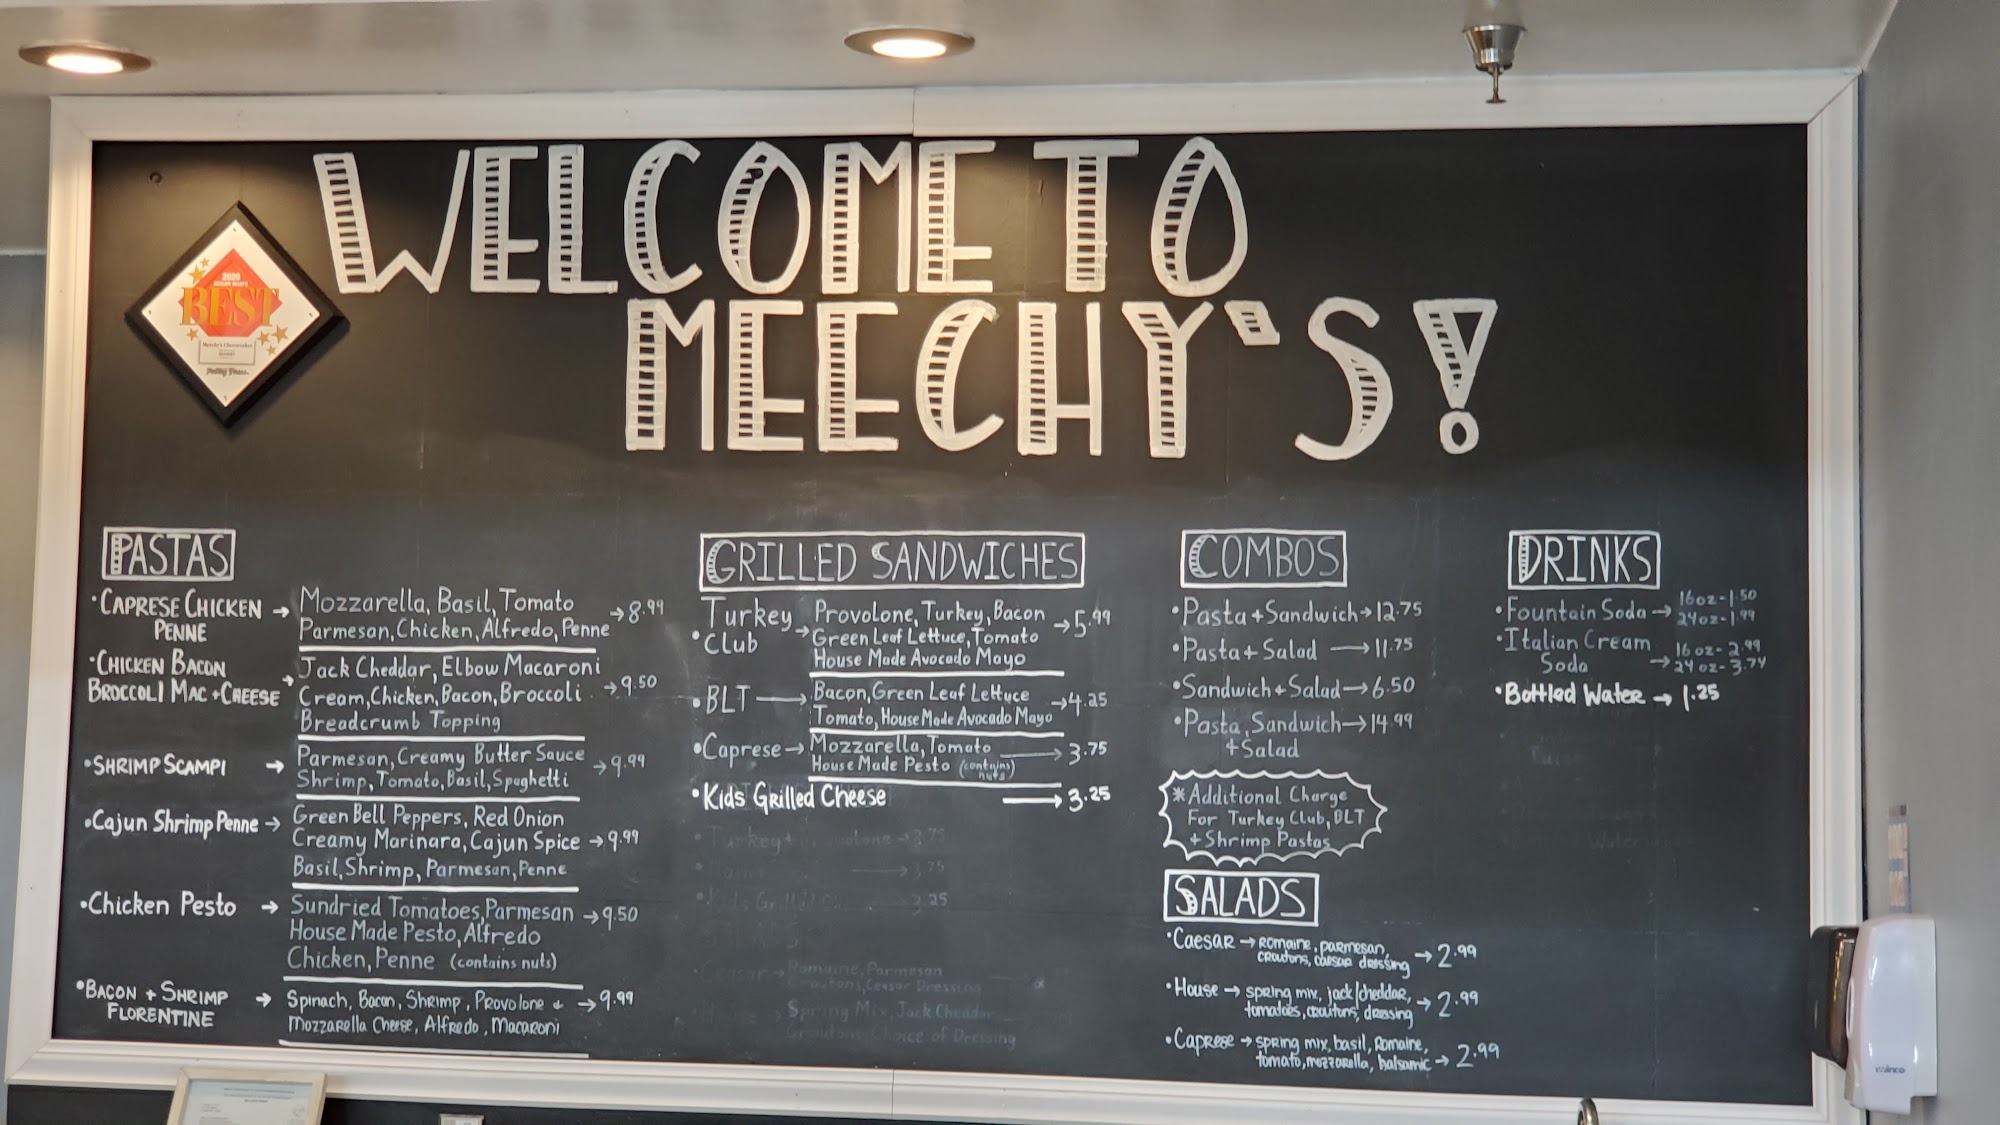 WELCOME TO
MEECHY'S!
2020
BEST
PASTAS
•CAPRESE CHICKEN PENNE → Mozzarella, Basil, Tomato
Parmesan, Chicken, Alfredo, Penne →8.99
•CHICKEN BACON BROCCOLI MAC + CHEESE → Jack Cheddar, Elbow Macaroni
Cream, Chicken, Bacon, Broccoli →9.50
Breadcrumb Topping
•SHRIMP SCAMPI → Parmesan, Creamy Butter Sauce
Shrimp, Tomato, Basil, Spaghetti →9.99
•Cajun Shrimp Penne → Green Bell Peppers, Red Onion
Creamy Marinara, Cajun Spice →9.99
Basil, Shrimp, Parmesan, Penne
•Chicken Pesto → Sundried Tomatoes, Parmesan →9.50
House Made Pesto, Alfredo
Chicken, Penne (contains nuts)
•BACON + SHRIMP FLORENTINE → Spinach, Bacon, Shrimp, Provolone + →9.99
Mozzarella Cheese, Alfredo, Macaroni
GRILLED SANDWICHES
•Turkey Club → Provolone, Turkey, Bacon
Green Leaf Lettuce, Tomato →5.99
House Made Avocado Mayo
•BLT → Bacon, Green Leaf Lettuce
Tomato, House Made Avocado Mayo →4.25
•Caprese → Mozzarella, Tomato → 3.75
House Made Pesto (contains nuts)
•Kids Grilled Cheese → 3.25
Turkey + Provolone → 3.75
→ 3.75
Kids Grilled 3.25
Caesar → Romaine, Parmesan
Croutons, Ceasar Dressing
House Spring Mix, Jack Cheddar
Croutons, Choice of Dressing
COMBOS
•Pasta + Sandwich→12.75
•Pasta + Salad →11.75
•Sandwich + Salad→6.50
•Pasta, Sandwich→14.99
+ Salad
*Additional Charge
For Turkey Club, BLT
+ Shrimp Pastas
SALADS
•Caesar → Romaine, parmesan,
croutons, caesar dressing → 2.99
•House → spring mix, jack/cheddar,
tomatoes, croutons, dressing → 2.99
•Caprese → spring mix, basil, Romaine,
tomato, mozzarella, balsamic → 2.99
DRINKS
•Fountain Soda → 16oz-1.50
24oz-1.99
•Italian Cream Soda → 16oz-2.99
24oz-3.74
•Bottled Water → 1.25
Winco